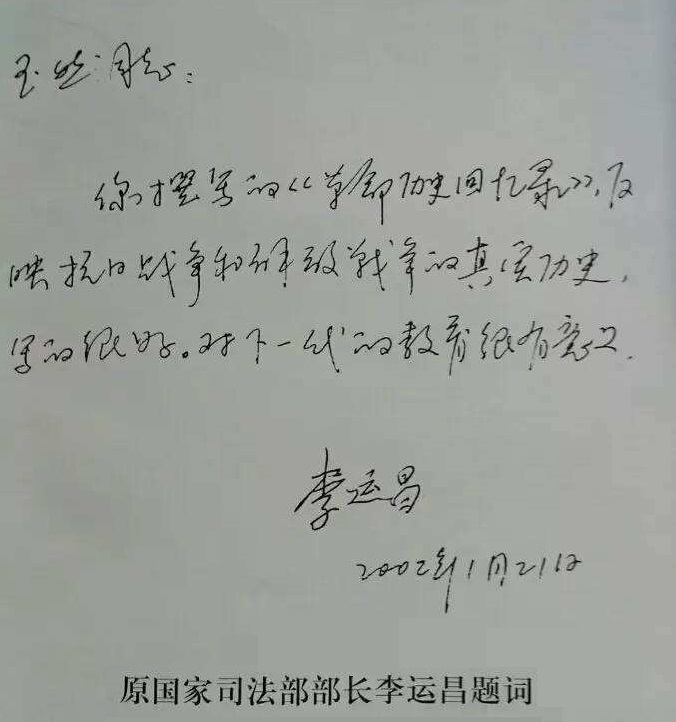 玉然同志：
你撰写的《革命历史回忆录》，反
映抗日战争和解放战争的真实历史，
写的很好。对下一代的教育很有意义.
李运昌
2002年1月21日
原国家司法部部长李运昌题词